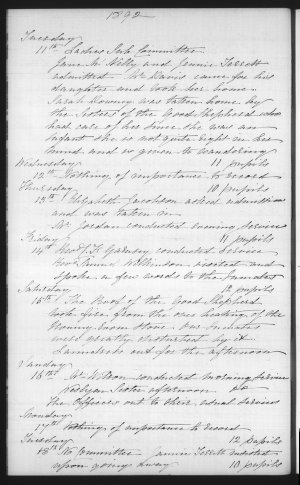 1892
Tuesday
11th Ladies Sub Committee
Jane McNelly and Jennie Terrett
admitted Mr Davis came for his
daughter and took her home.
Sarah Downey was taken home by
the Sisters of the Good Shepherd who
had care of her since she was an
infant she is not quite right in her
mind and is given to wandering
Wednesday 11 pupils
12th Nothing of importance to record
Thursday 10 pupils
13th Elizabeth Jacobson asked admission
and was taken in
Mr Jordan conducted evening service
Friday 11 pupils
14th conducted service
visited and
spoke a few words to the inmates
Saturday 12 pupils
15th The Roof of the Good Shepherd
took fire from the over heating of the
Ironing room stove Our inmates
were greatly disturbed by it
out for the afternoon
Sunday
16th Mr Wilson conducted morning service
Sister afternoon
The Officers out to their usual services
Monday
17th Nothing of importance to record
Tuesday 12 pupils
18th No Committee Jennie Terrett
upon going away 10 pupils